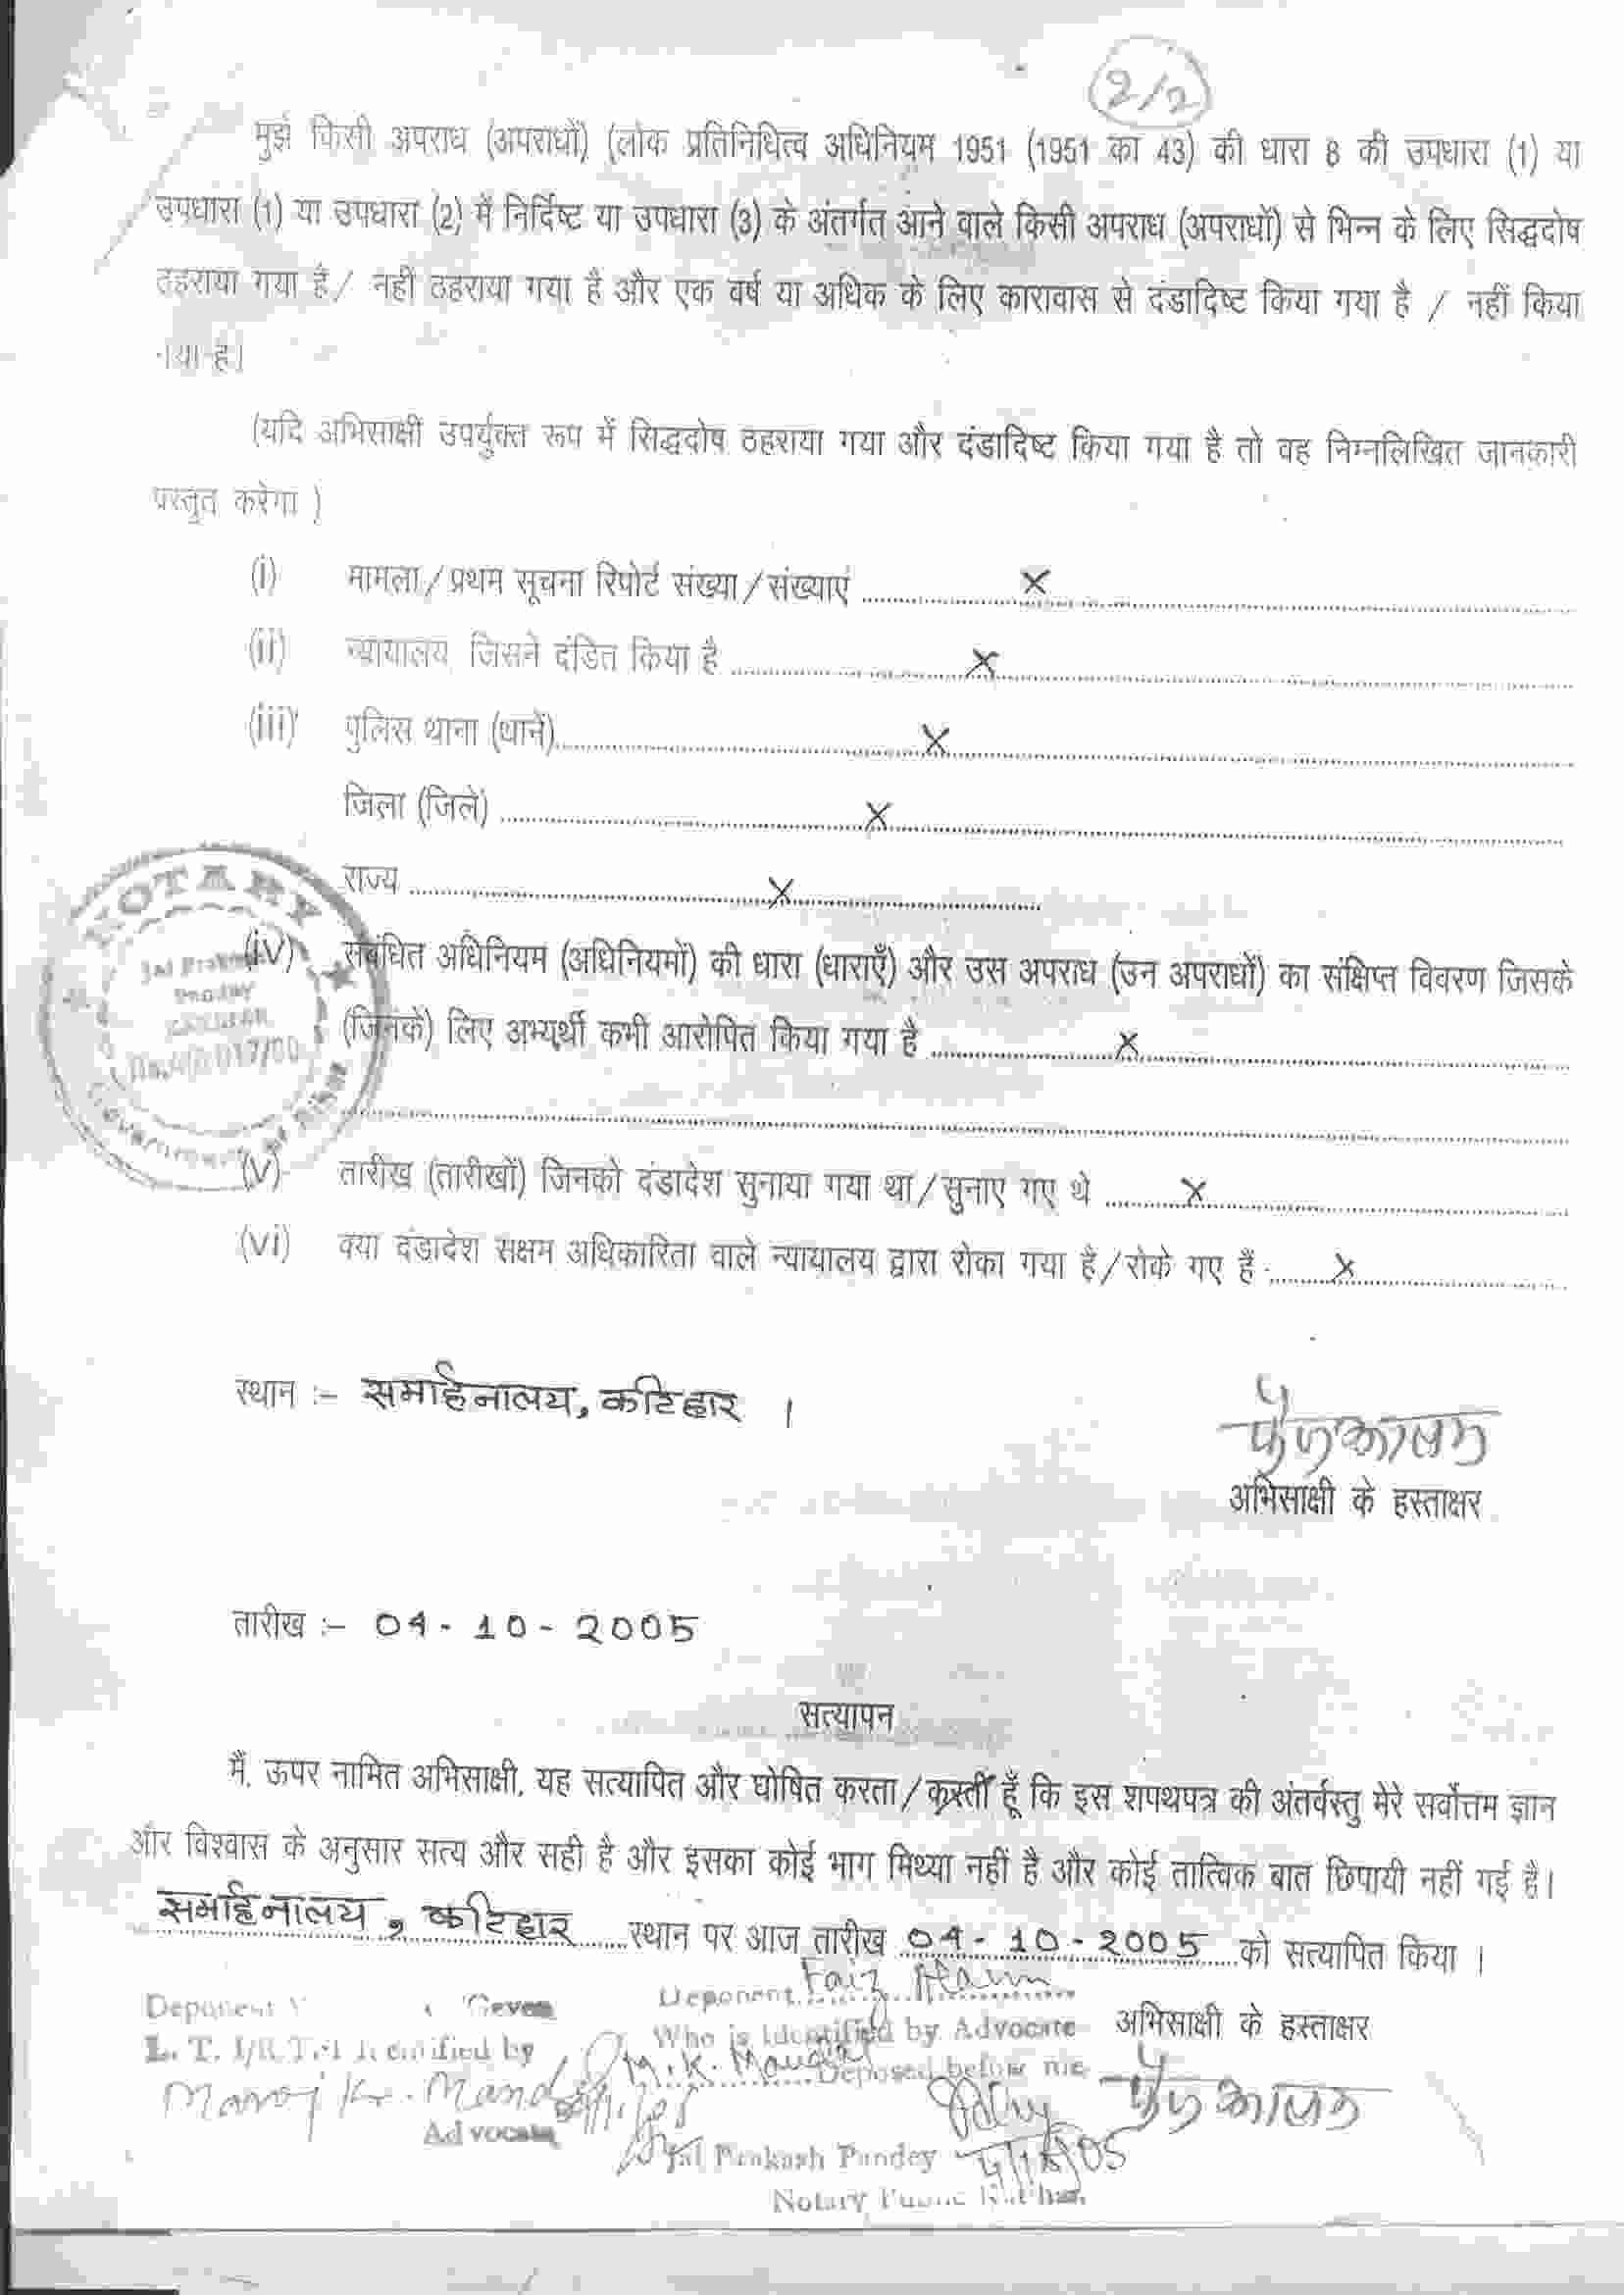 2/2
मुझे किसी अपराध (अपराधों) (लोक प्रतिनिधित्व अधिनियम 1951 (1951 का 43) की धारा 8 की उपधारा (1) या
उपधारा (1) या उपधारा (2) में निर्दिष्ट या उपधारा (3) के अंतर्गत आने वाले किसी अपराध (अपराधों) से भिन्न के लिए सिद्धदोष
ठहराया गया है / नहीं ठहराया गया है और एक वर्ष या अधिक के लिए कारावास से दंडादिष्ट किया गया है / नहीं किया
गया है।
(यदि अभिसाक्षी उपर्युक्त रूप में सिद्धदोष ठहराया गया और दंडादिष्ट किया गया है तो वह निम्नलिखित जानकारी
प्रस्तुत करेगा )
(i) मामला/प्रथम सूचना रिपोर्ट संख्या/संख्याएं ........ X ........
(ii) न्यायालय जिसने दंडित किया है ........ X ........
(iii) पुलिस थाना (थानें) ........ X ........
जिला (जिले) ........ X ........
राज्य ........ X ........
NOTARY
Government of Bihar
(iv) संबंधित अधिनियम (अधिनियमों) की धारा (धाराएँ) और उस अपराध (उन अपराधों) का संक्षिप्त विवरण जिसके
(जिनके) लिए अभ्यर्थी कभी आरोपित किया गया है ........ X ........
(v) तारीख (तारीखों) जिनको दंडादेश सुनाया गया था/सुनाए गए थे ........ X ........
(vi) क्या दंडादेश सक्षम अधिकारिता वाले न्यायालय द्वारा रोका गया है/रोके गए हैं ........ X ........
स्थान :- समाहर्नालय, कटिहार ।
अभिसाक्षी के हस्ताक्षर
तारीख :- 04-10-2005
सत्यापन
मैं, ऊपर नामित अभिसाक्षी, यह सत्यापित और घोषित करता/करती हूँ कि इस शपथपत्र की अंतर्वस्तु मेरे सर्वोत्तम ज्ञान
और विश्वास के अनुसार सत्य और सही है और इसका कोई भाग मिथ्या नहीं है और कोई तात्विक बात छिपायी नहीं गई है।
समाहर्नालय, कटिहार ........ स्थान पर आज तारीख 04-10-2005 को सत्यापित किया ।
Deponent
Deponent Faiz
L. T. I/R.T.I Identified by
Who is Identified by Advocate
अभिसाक्षी के हस्ताक्षर
M.K. Mandal Deposed below me
Manoj Kr. Mandal
Advocate
Jai Prakash Pandey
Notary Public Katihar